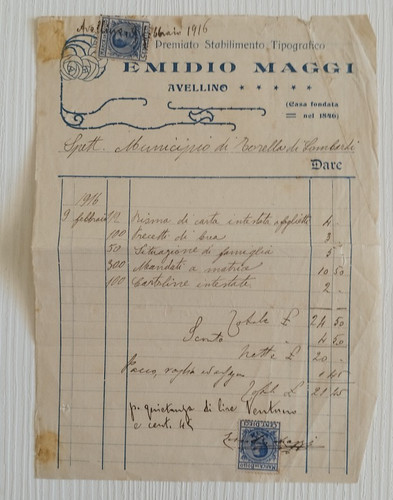 Avellino febbraio 1916
Premiato Stabilimento Tipografico
EMIDIO MAGGI
AVELLINO * * * * *
(Casa fondata
nel 1886)
Spett. Municipio di Torella di Lombardi
Dare
1916
9 febbraio 1/2 Risma di carta intestata a foglietti 4 -
100 Precetti di 3 -
50 Situazione di famiglia 5 -
300 Mandati a matrice 10 50
100 Cartoline intestate 2 -
Totale £ 24 50
Sconto 4 50
Nette £ 20 -
Pacco, 1 45
Totale £ 21 45
p. quietanza di lire Ventuno
e cent. 45
Emidio Maggi